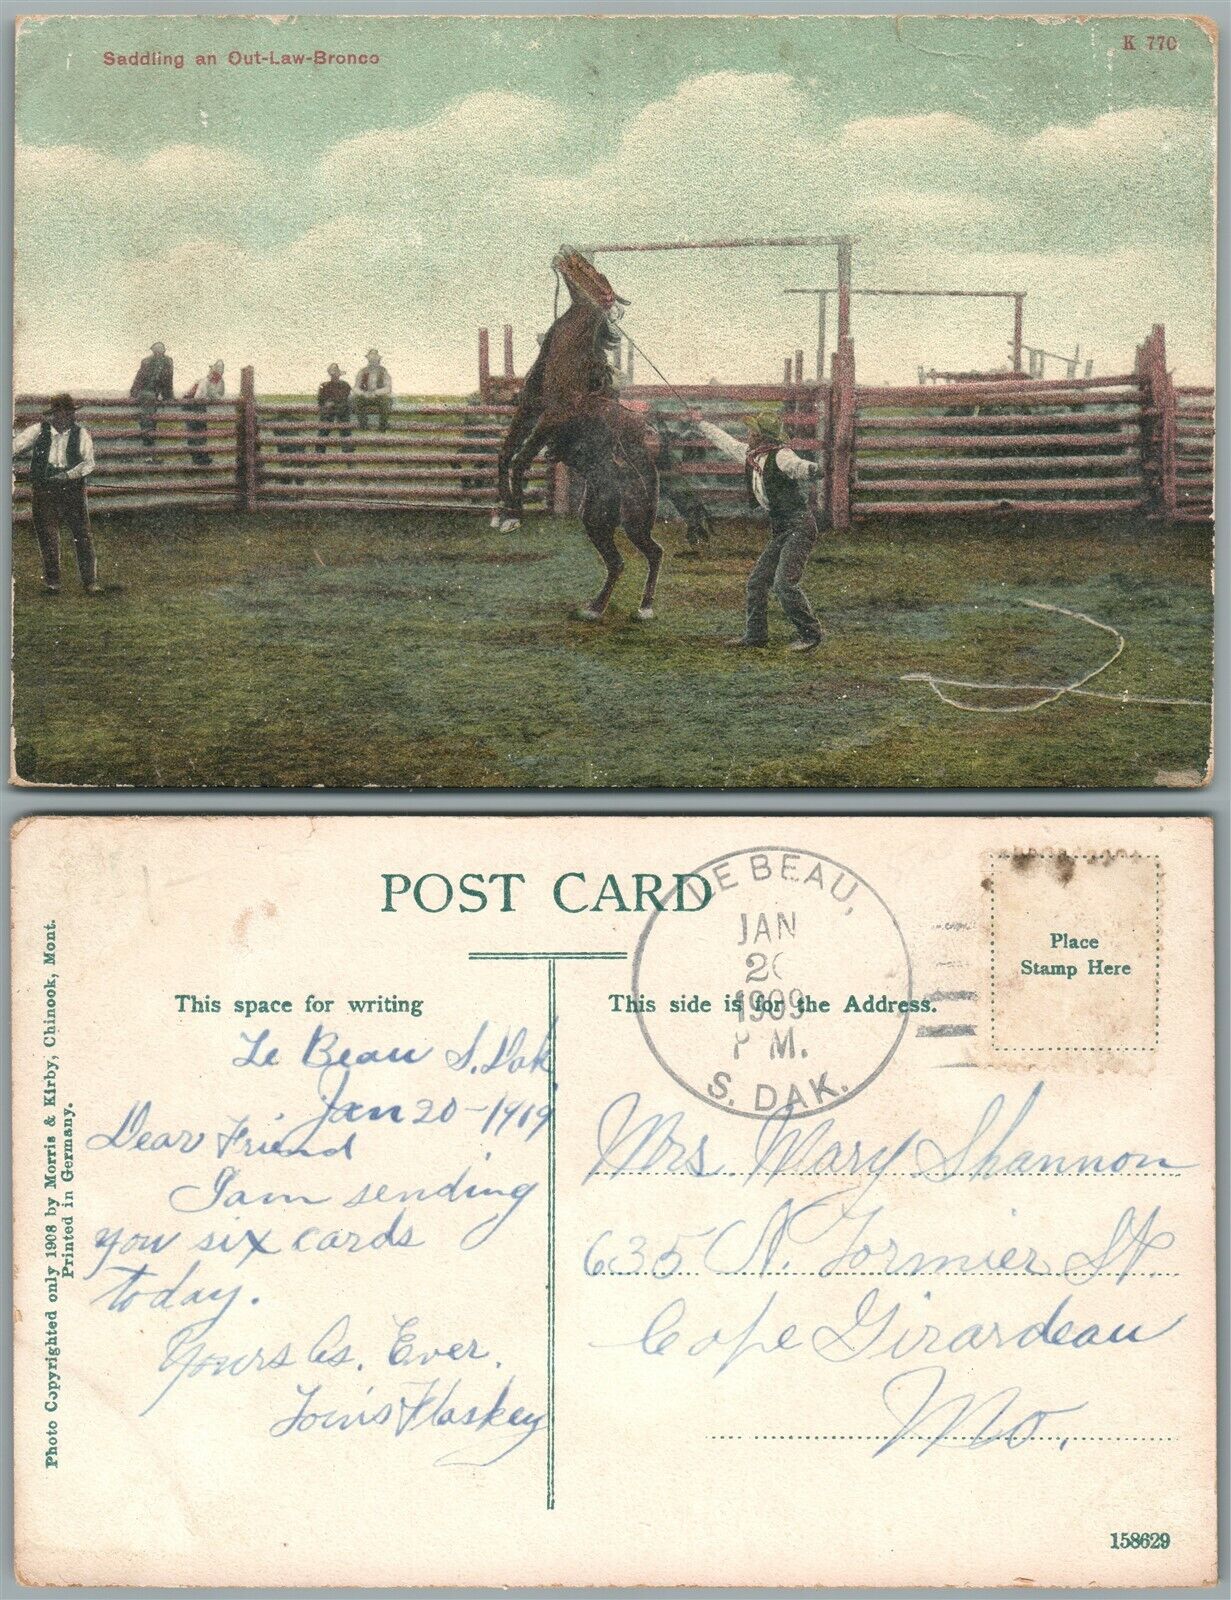 Saddling an Out-Law-Bronco
K 770
POST CARD
LE BEAU,
JAN
20
1909
P.M.
S. DAK.
Place
Stamp Here
This space for writing
This side is for the Address.
Photo Copyrighted only 1908 by Morris & Kirby, Chinook, Mont.
Printed in Germany.
Le Beau S. Dak.
Jan 20-1909
Dear Friend
I am sending
you six cards
today.
Yours As. Ever.
Louis Flaskey
Mrs. Mary Shannon
635 N. Formier St.
Cape Girardeau
Mo.
158629